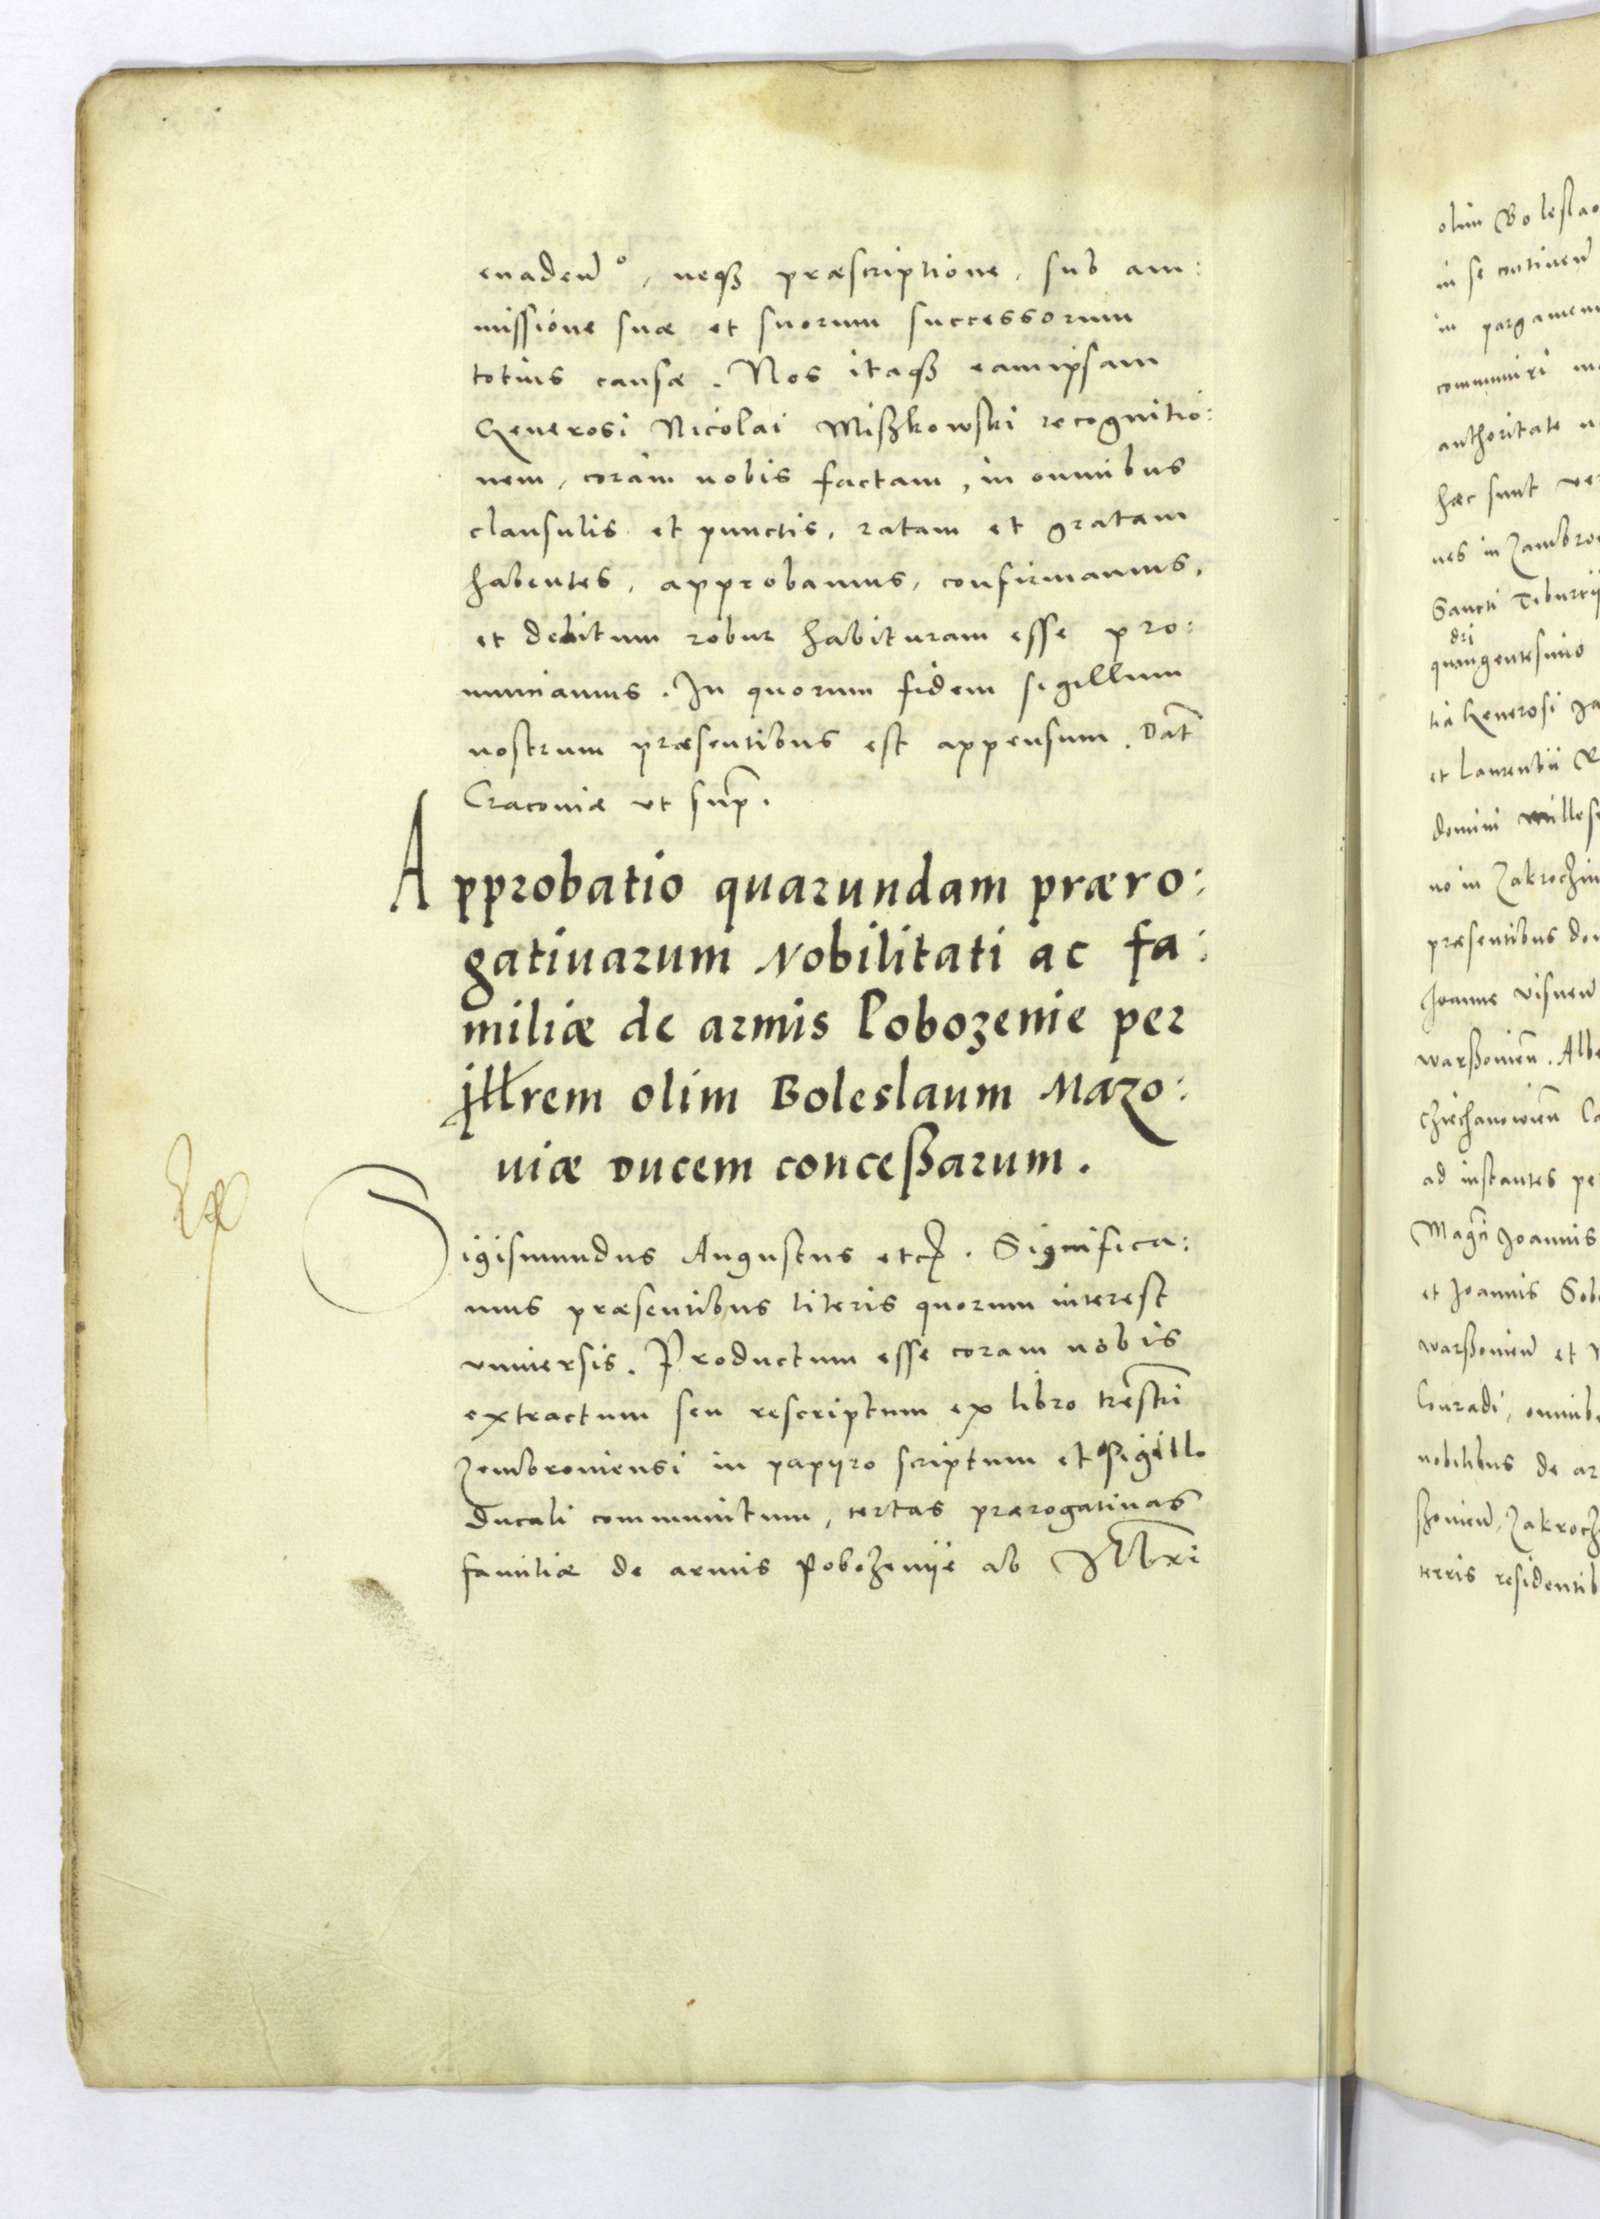 euaden͂º, neqȝ præscriptione, sub am:
missione suæ et suorum successorum
totius causæ. Nos itaqȝ eamipsam
Generosi Nicolai Mißkowski recognitio:
nem, coram nobis factam, in omnibus
clausulis et punctis, ratam et gratam
habentes, approbamus, confirmamus,
et debitum robur habituram esse pro:
nunciamus. In quorum fidem sigillum
nostrum præsentibus est appensum. Dat̃
Cracouiæ ut sup̃.
Approbatio quarundam præro:
gatiuarum Nobilitati ac fa:
miliæ de armis Pobozenie per
illrem olim Boleslaum Mazo:
uiæ Ducem conceßarum.
Sigismundus Augustus etc. Significa:
mus præsentibus literis quorum interest
vniuersis. Productum esse coram nobis
extractum seu rescriptum ex libro trẽstri
Zembroniensi in papyro scriptum et sigillo
Ducali communitum, certas prærogatiuas
familiæ de armis Pobozenije ab Illri
olim Boleslao
in se continen͂
in pargamen
communiri
authoritate
hæc sunt
nes in Zambro
Sancti Tiburcij
dri
quingentesimo
tia Generosi
et Laurentii
domini milles
no in Zakrochin
præsentibus
Joanne Visnen͂
warßouien͂. Alb
Chiechanowien͂
ad instantes pe
Magci Joannis
et Joannis Sob
warßouien͂ et
Conradi, omnib
nobilibus de ar
ßouien͂, Zakroch
terris residentib